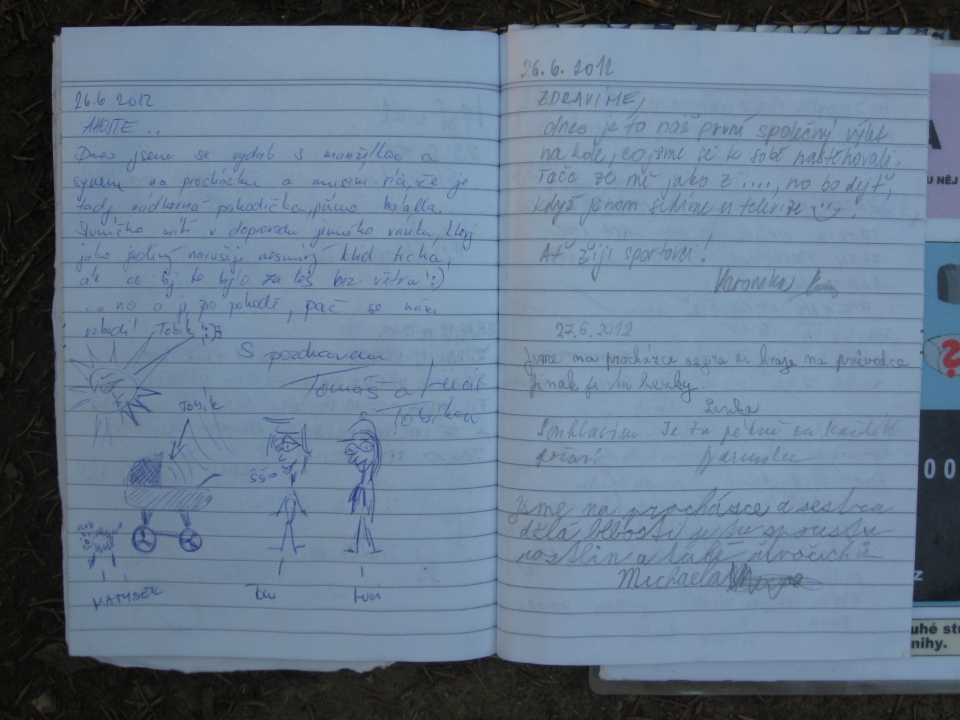 26.6. 2012
AHOJTE ..
Dnes jsme se vydali s manželkou a
synem na procházku a musím říci, že je
tady nádherná pohodička, přímo
Sluníčko svítí v doprovodu jemného vánku, který
jako jediný narušuje klid ticha,
ale co by to bylo za les bez větru! :)
.. no a je po pohodě, páč se nám
vzbudil Tobík
S pozdravem
Tomáš a Lucie
Tobík
ššš
MATÝSEK
Tom
Luci
26. 6. 2012
ZDRAVÍME,
dnes je to náš první společný výlet
na kole, co jsme se k sobě nastěhovali.
Teče ze mě jako z ...., no bodejť,
když jenom sedíme u televize
Ať žijí sportovci!
Veronika
27.6. 2012
Jsme na procházce segra si hraje na průvodce
jinak je tu hezky
Lenka
Souhlasím. Je tu pěkně za každého
počasí
Jsme na procházce a sestra
dělá blbosti je tu spoustu
rostlin a také živočichů
Michaela
A
U NĚJ
?
00
Z
uhé str
nihy.